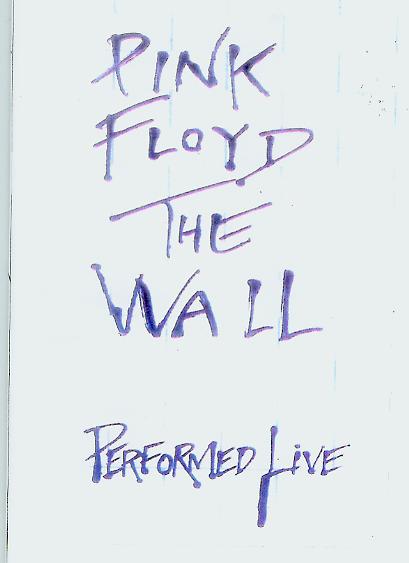 PINK
FLOYD
THE
WALL
PERFORMED LiVE